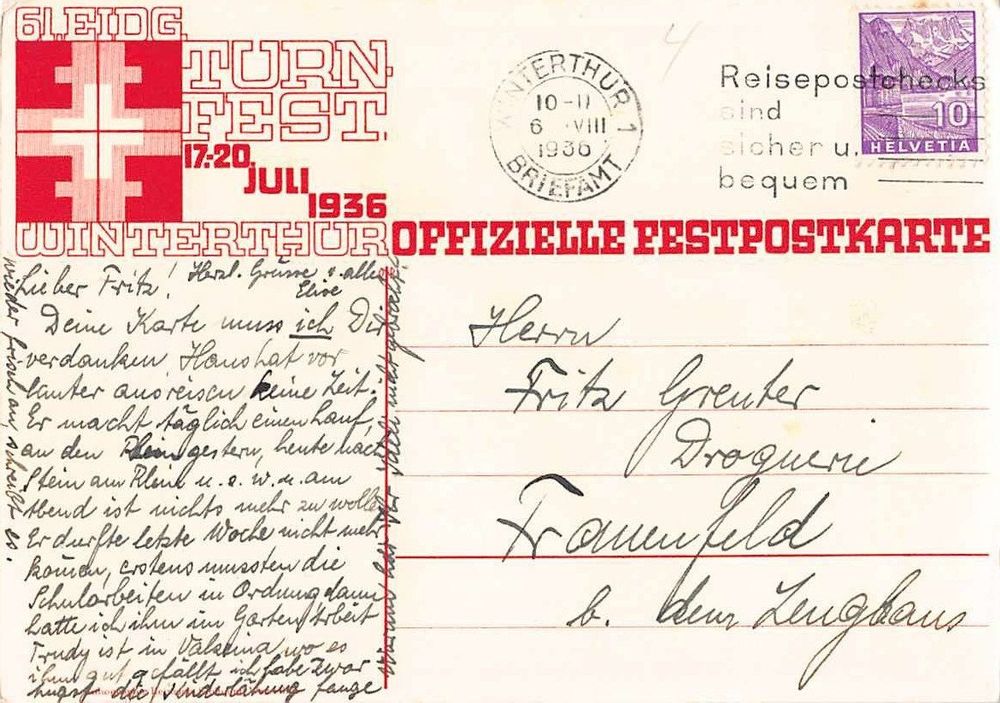 61. EIDG.
TURN-
FEST.
17.-20.
JULI
1936
WINTERTHUR
OFFIZIELLE FESTPOSTKARTE
WINTERTHUR 1
10-11
6. VIII
1936
BRIEFAMT
Reisepostchecks
sind
sicher u.
bequem
10
HELVETIA
4
Lieber Fritz! Herzl. Grüsse v. allen
Elise
Deine Karte muss ich Dir
verdanken, Hans hat vor
lauter ausreisen keine Zeit.
Er macht täglich einen Lauf,
an den Rhein gestern, heute nach
Stein am Rhein u. s. w. u. am
Abend ist nichts mehr zu wollen
Er durfte letzte Woche nicht mehr
kommen, erstens mussten die
Schularbeiten in Ordnung dann
hatte ich ihn im Garten Arbeit
Trudy ist in wo es
ihm gut gefällt ich habe zwar
Angst die fange
wieder frisch an, schreibt es.
Herrn
Fritz Greuter
Droguerie
Frauenfeld
b. dem Zeughaus